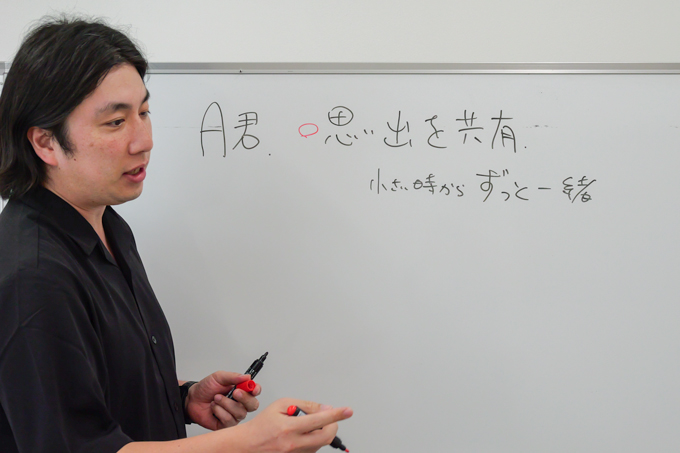 A君. ○思い出を共有.
小さい時からずっと一緒